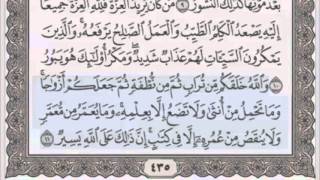 بَعْدَ مَوْتِهَا كَذَٰلِكَ النُّشُورُ ۝٩ مَن كَانَ يُرِيدُ الْعِزَّةَ فَلِلَّهِ الْعِزَّةُ جَمِيعًا
إِلَيْهِ يَصْعَدُ الْكَلِمُ الطَّيِّبُ وَالْعَمَلُ الصَّالِحُ يَرْفَعُهُ وَالَّذِينَ
يَمْكُرُونَ السَّيِّئَاتِ لَهُمْ عَذَابٌ شَدِيدٌ وَمَكْرُ أُولَٰئِكَ هُوَ يَبُورُ
۝١٠ وَاللَّهُ خَلَقَكُم مِّن تُرَابٍ ثُمَّ مِن نُّطْفَةٍ ثُمَّ جَعَلَكُمْ أَزْوَاجًا
وَمَا تَحْمِلُ مِنْ أُنثَىٰ وَلَا تَضَعُ إِلَّا بِعِلْمِهِ وَمَا يُعَمَّرُ مِن مُّعَمَّرٍ
وَلَا يُنقَصُ مِنْ عُمُرِهِ إِلَّا فِي كِتَابٍ إِنَّ ذَٰلِكَ عَلَى اللَّهِ يَسِيرٌ ۝١١
٤٣٥